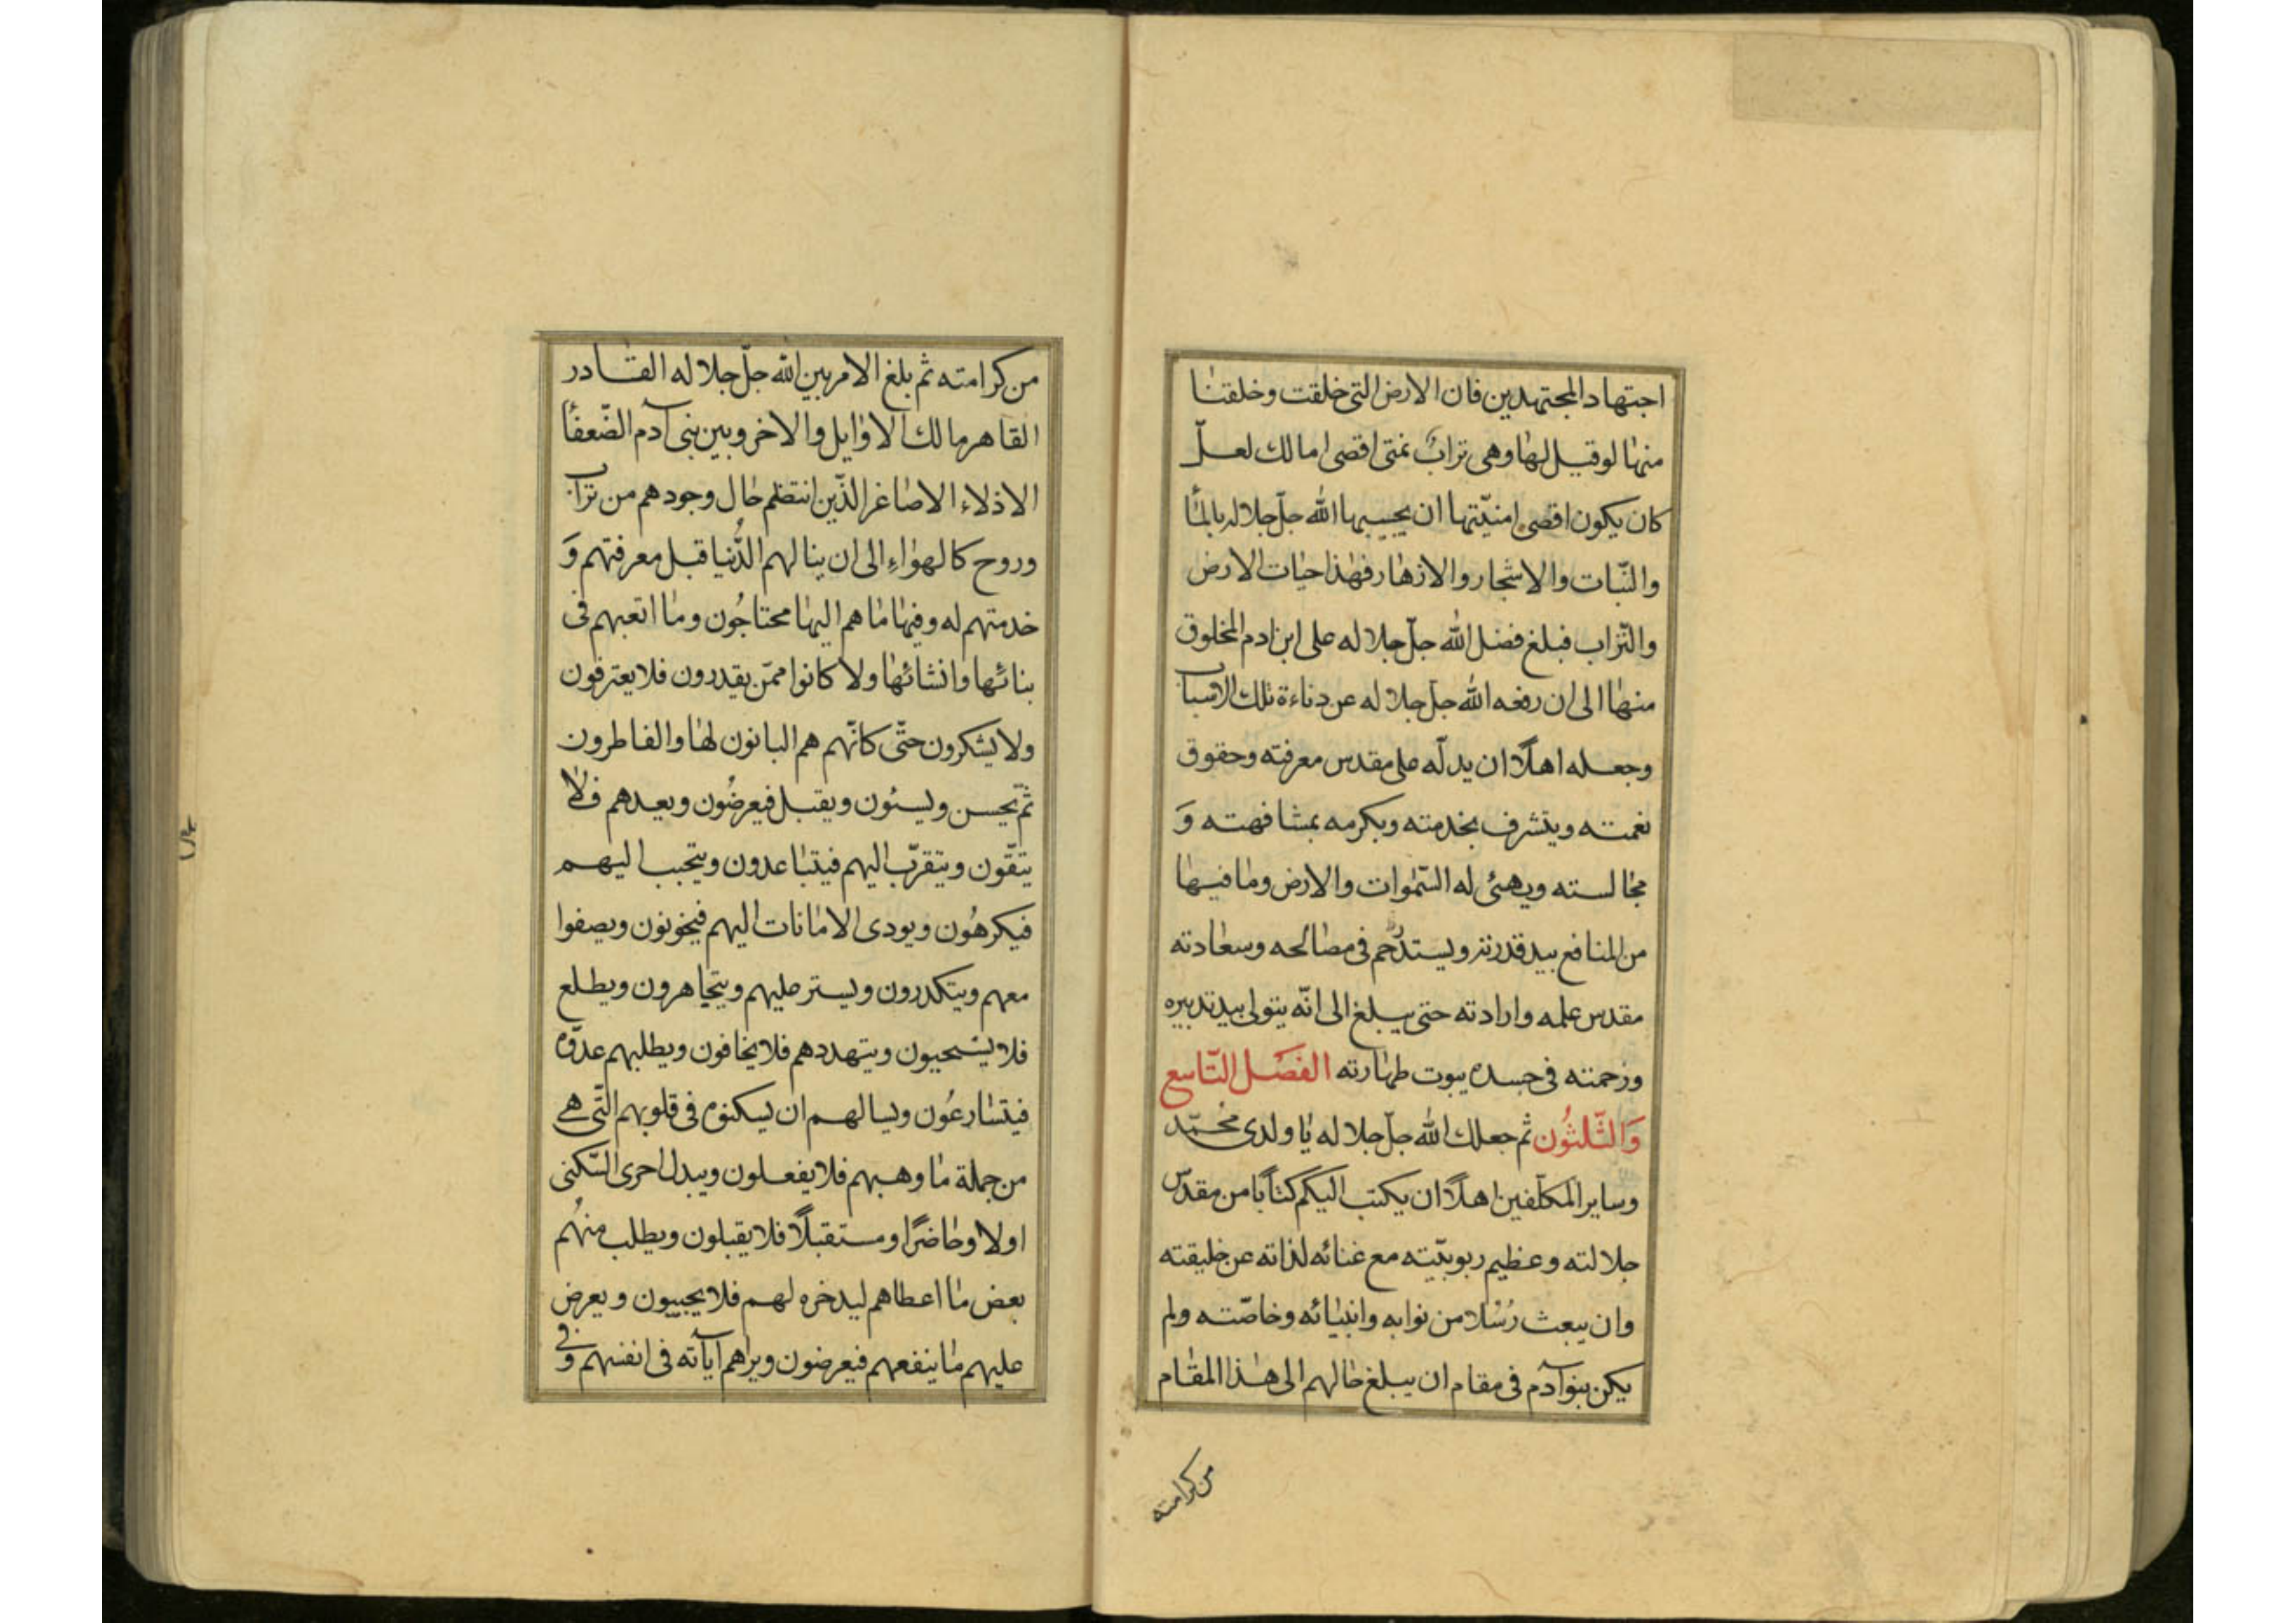 اجتهاد المجتهدين فان الارض التى خلقت وخلقنا
منها لو قيل لها وهى تراب تمنى اقصى امالك لعلّ
كان يكون اقصى امنيّتها ان يحييها الله جلّ جلاله بالماء
والنّبات والاشجار والازهار فهذا حيات الارض
والتّراب فبلغ فضل الله جلّ جلاله على ابن ادم المخلوق
منها الى ان رفعه الله جلّ جلاله عن دناءة تلك الاسباب
وجعله اهلًا ان يدلّه على مقدس معرفته وحقوق
نعمته ويتشرف بخدمته ويكرمه بمشافهته وَ
مجالسته ويهيئ له السّموات والارض وما فيها
من المنافع بيد قدرته ويستدرحم فى مصالحه وسعادته
مقدس علمه وارادته حتى يبلغ الى انّه يتولى بيد تدبيره
ورحمته فى جسده بيوت طهارته الفصل التّاسع
وَالثّلثُون ثم جعلك الله جلّ جلاله يا ولدى محمّد
وساير المكلّفين اهلًا ان يكتب اليكم كتابًا من مقدّس
جلالته وعظيم ربوبيّته مع غنائه لذاته عن خليقته
وان يبعث رُسُلا من نوابه وانبيائه وخاصّته ولم
يكن بنو آدم فى مقام ان يبلغ حالهم الى هذا المقام
من كرامته
من كرامته ثم بلغ الامر بين الله جلّ جلاله القادر
القاهر مالك الاوايل والاخر وبين بنى آدم الضّعفاء
الاذلاء الاصاغر الذّين انتظم حال وجودهم من تراب
وروح كالهواءِ الى ان بنا لهم الدُّنيا قبل معرفتهم وَ
خدمتهم له وفيها ما هم اليها محتاجُون وما اتعبهم فى
بنائها وانشائها ولا كانوا ممّن يقدرون فلا يعترفون
ولا يشكرون حتّى كانّهم هم البانون لها والفاطرون
ثمّ يحسن ويسئون ويقبل فيعرضُون ويعدهم فلا
يتّقون ويتقرّب اليهم فيتباعدون ويتحبب اليهم
فيكرهُون ويودى الامانات اليهم فيخونون ويصفوا
معهم ويتكدرون ويستر عليهم ويتجاهرون ويطلع
فلا يستحيون ويتهددهم فلا يخافون ويطلبهم عدوّه
فيتسارعُون ويسالهم ان يسكنوه فى قلوبهم الّتى هي
من جملة ما وهبهم فلا يفعلون ويبدل احرى السّكنى
اولا وحاضرًا ومستقبلًا فلا يقبلون ويطلب منهُم
بعض ما اعطاهم ليدخره لهم فلا يجيبون ويعرض
عليهم ما ينفعهم فيعرضون ويراهم آياته فى انفسهم وفى